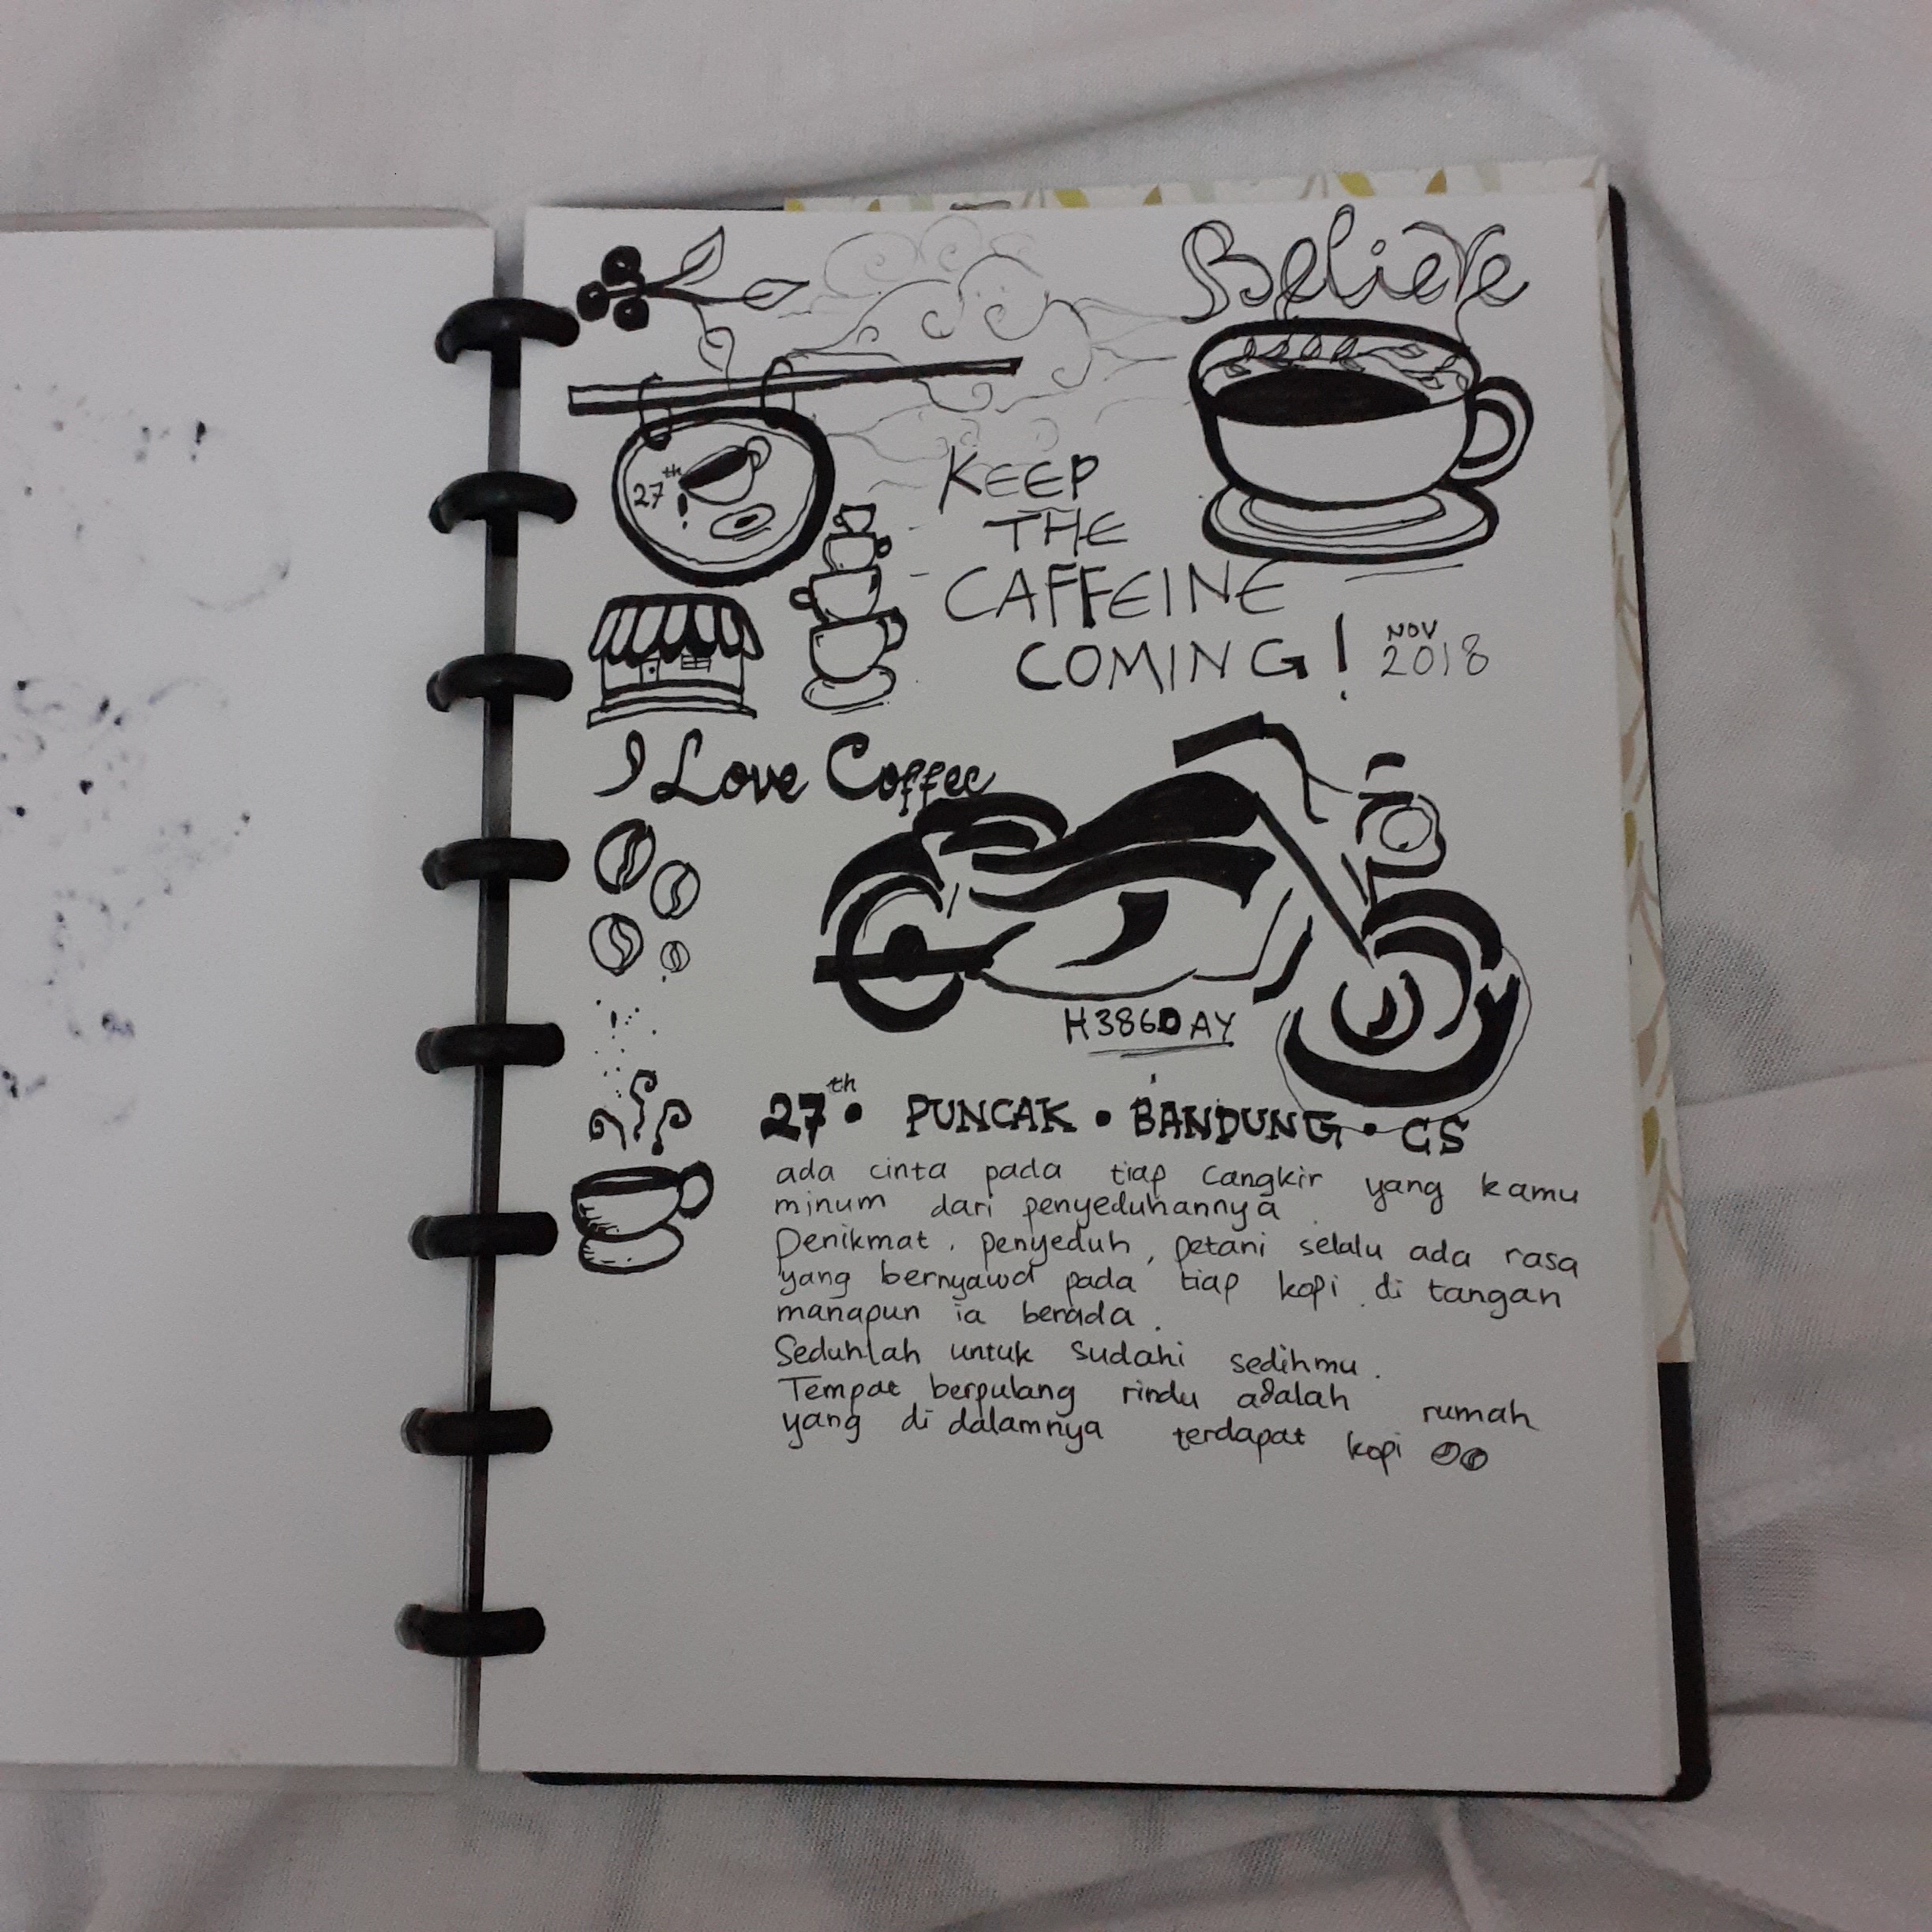 Believe
27th
KEEP
THE
CAFFEINE
COMING!
NOV
2018
I Love Coffee
H386DAY
27th • PUNCAK • BANDUNG • CS
ada cinta pada tiap cangkir yang kamu
minum dari penyeduhannya
Penikmat, penyeduh, petani selalu ada rasa
yang bernyawa pada tiap kopi di tangan
manapun ia berada.
Seduhlah untuk sudahi sedihmu.
Tempat berpulang rindu adalah rumah
yang di dalamnya terdapat kopi